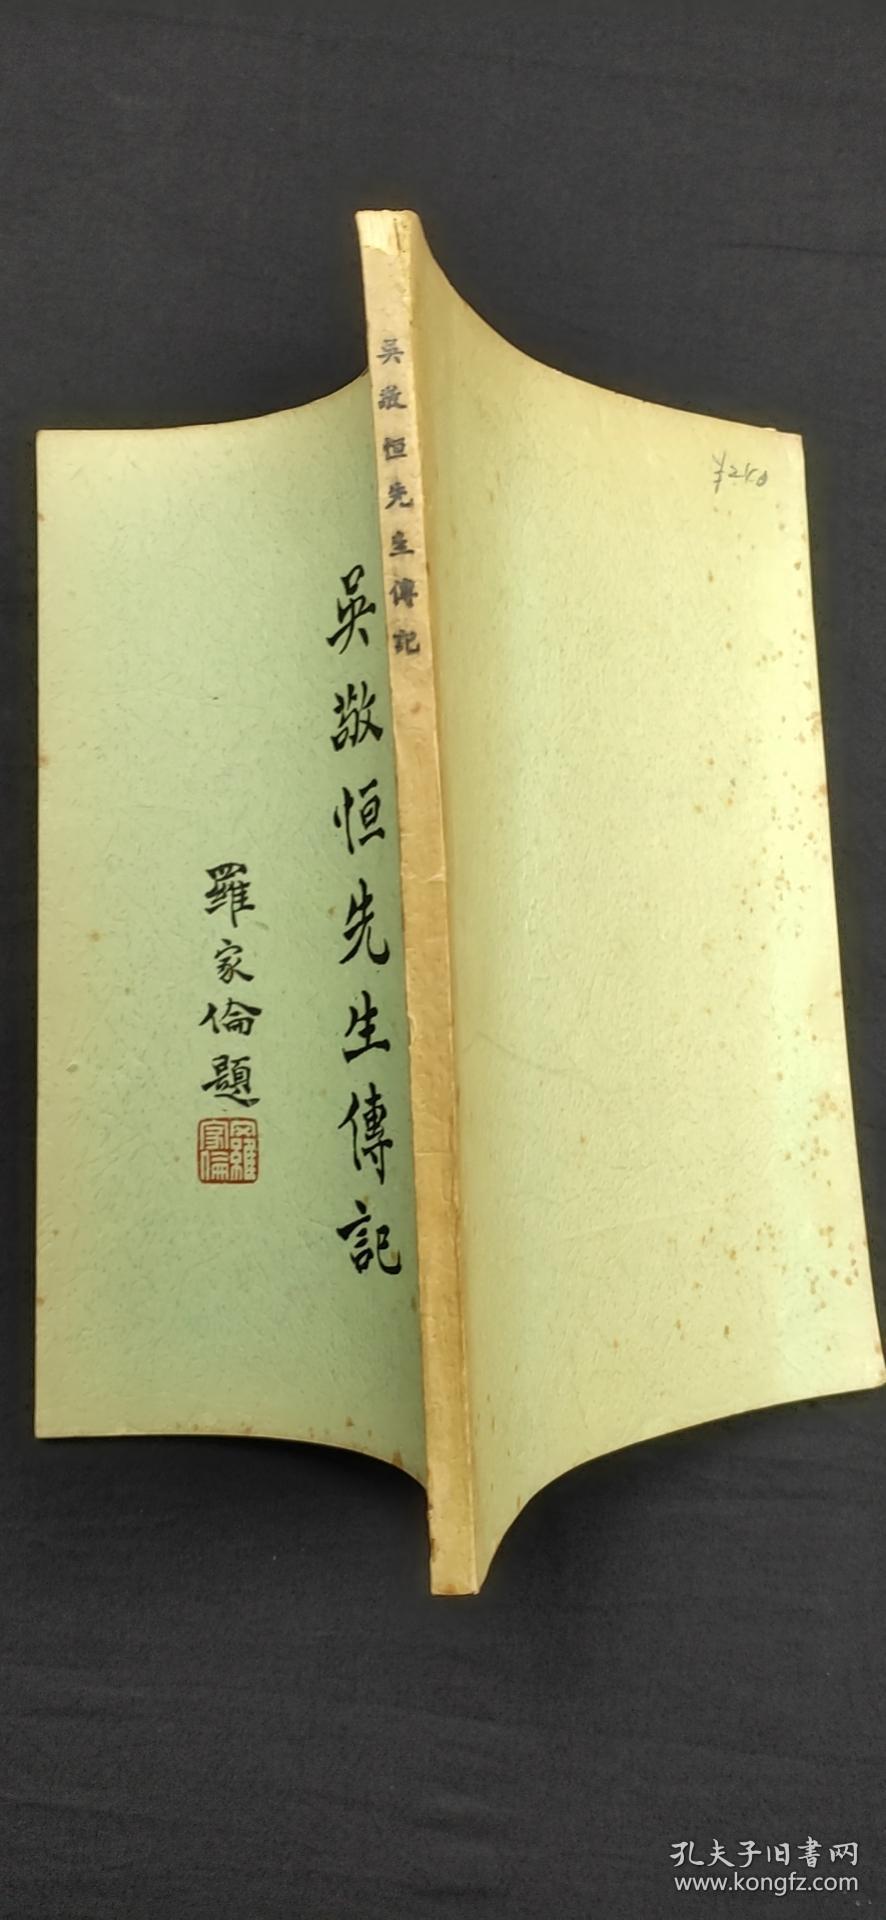 吳敬恒先生傳記
吳敬恒先生傳記
羅家倫題
羅家倫
孔夫子旧書网
www.kongfz.com